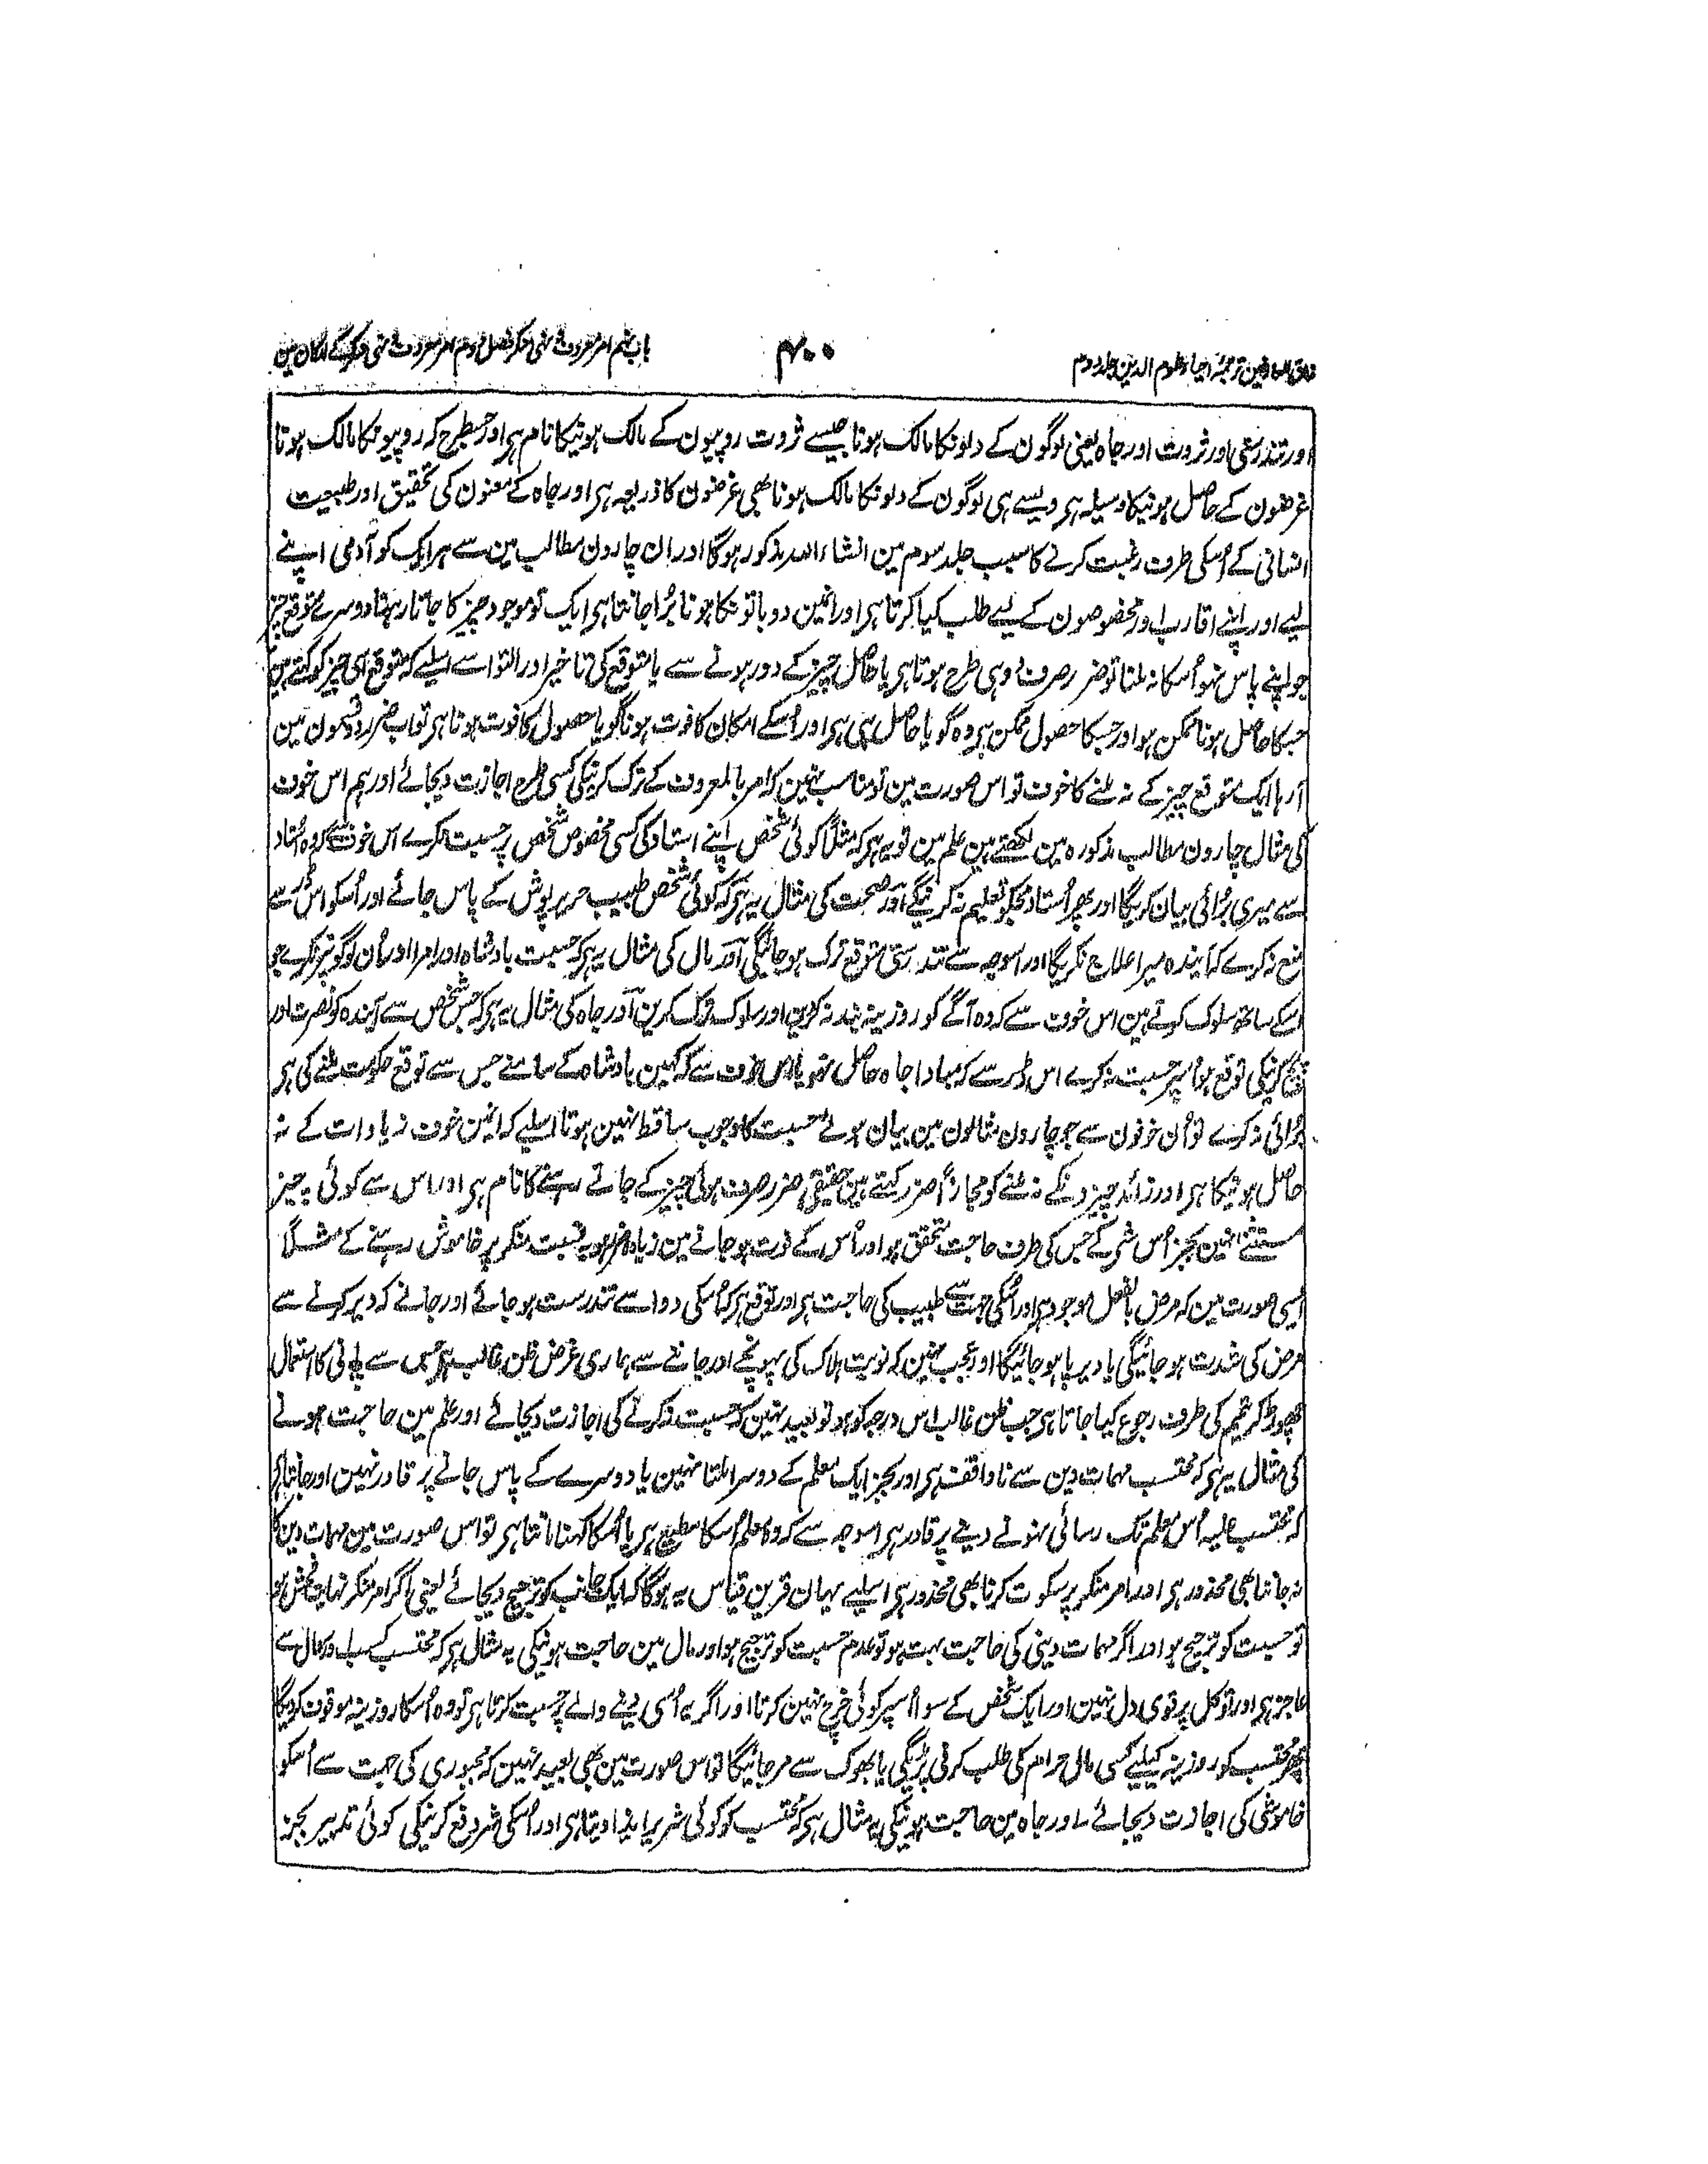 مذاق العارفین ترجمۂ احیاء علوم الدین جلد دوم
۴۰۰
باب نہم امر معروف و نہی منکر فصل دوم امر معروف و نہی منکر کے ارکان مین
اور تندرستی اور ثروت اور جاہ یعنی لوگون کے دلونکا مالک ہونا جیسے ثروت روپیون کے مالک ہونیکا نام ہی اور جسطرح کہ روپیونکا مالک ہونا
غرضون کے حاصل ہونیکا وسیلہ ہی ویسے ہی لوگون کے دلونکا مالک ہونا بھی غرضون کا ذریعہ ہی اور جاہ کے معنون کی تحقیق اور طبیعت
انسانی کے اُسکی طرف رغبت کرنے کا سبب جلد سوم مین انشاء اللہ مذکور ہوگا اور ان چارون مطالب مین سے ہر ایک کو آدمی اپنے
لیے اور اپنے اقارب اور مخصوصون کے لیے طلب کیا کرتا ہی اور انمین دو باتونکا ہونا بُرا جانتا ہی ایک تو موجود چیز کا جاتا رہنا دوسرے متوقع چیز
جو اپنے پاس نہو اُسکا نہ ملنا تو ضرر صرف دو ہی طرح ہوتا ہی یا حاصل چیز کے دور ہونے سے یا متوقع کی تاخیر اور التوا سے اسلیے کہ متوقع اُسی چیز کو کہتے ہین
جسکا حاصل ہونا ممکن ہو اور جسکا حصول ممکن ہی وہ گویا حاصل ہی ہی اور اُسکے امکان کا فوت ہونا گویا حصول کا فوت ہونا ہی تو اب ضرر دو قسمون مین
آ رہا ایک متوقع چیز کے نہ ملنے کا خوف تو اس صورت مین تو مناسب نہین کہ امر بالمعروف کے ترک کرنیکی کسی طرح اجازت دیجائے اور ہم اس خوف
کی مثال چارون مطالب مذکورہ مین لکھتے ہین علم مین تو یہ ہی کہ مثلاً کوئی شخص اپنے استاد کی کسی مخصوص شخص پر حسبت نکرے اس خوف سے کہ وہ اُستاد
سے میری بُرائی بیان کریگا اور پھر اُستاد مجکو تعلیم نہ کرینگے اور صحت کی مثال یہ ہی کہ کوئی شخص طبیب حریر پوش کے پاس جائے اور اُسکو اس ڈر سے
منع نہ کرے کہ آیندہ میرا علاج نکریگا اور اسوجہ سے تندرستی متوقع ترک ہو جائیگی اور مال کی مثال یہ ہی کہ حسبت بادشاہ اور امرا اور اُن لوگونپر نکرے جو
اسکے ساتھ سلوک کرتے ہین اس خوف سے کہ وہ آگے کو روزینہ بند نہ کرین اور سلوک ترک کرین اور جاہ کی مثال یہ ہی کہ جس شخص سے آیندہ کو نصرت اور
کرنیکی توقع ہو اُسپر حسبت نہ کرے اس ڈر سے کہ مبادا جاہ حاصل نہو یا اس خوف سے کہ کہین بادشاہ کے سامنے جس سے توقع حکومت ملنے کی ہی
بُرائی نہ کرے تو اُن خوفون سے جو چارون مثالون مین بیان ہوئے حسبت کا وجوب ساقط نہین ہوتا اسلیے کہ انمین خوف زیادات کے نہ
حاصل ہونیکا ہی اور زائد چیزونکے نہ ملنے کو مجازاً ضرر کہتے ہین حقیقی ضرر صرف ہوئی چیز کے جاتے رہنے کا نام ہی اور اس سے کوئی چیز
مستثنے نہین بجز اُس شی کے جس کی طرف حاجت متحقق ہو اور اُس کے فوت ہو جانے مین زیادہ ضرر ہو بہ نسبت منکر پر خاموش رہنے کے مثلاً
ایسی صورت مین کہ مرض بالفعل موجود ہی اور اُسکی جہت سے طبیب کی حاجت ہی اور توقع ہی کہ اُسکی دوا سے تندرست ہو جائے اور جانے کہ دیر کرنے سے
مرض کی شدت ہو جائیگی یا دیرپا ہو جائیگا اور عجب نہین کہ نوبت ہلاک کی پہونچے اور جاننے سے ہماری غرض ظن غالب ہی جس سے پانی کا استعمال
چھوڑ کر تیمم کی طرف رجوع کیا جاتا ہی جب ظن غالب اس درجہ کو ہو تو بعید نہین کہ حسبت نہ کرنے کی اجازت دیجائے اور علم مین حاجت ہونے
کی مثال یہ ہی کہ محتسب مہمات دین سے ناواقف ہی اور بجز ایک معلم کے دوسرا ملتا نہین یا دوسرے کے پاس جانے پر قادر نہین اور جانتا ہی
کہ محتسب علیہ اُس معلم تک رسائی نہونے دینے پر قادر ہی اسوجہ سے کہ وہ معلم اُسکا مطیع ہی یا اُسکا کہنا مانتا ہی تو اس صورت مین مہمات دین کا
نہ جاننا بھی محذور ہی اور امر منکر پر سکوت کرنا بھی محذور ہی اسلیے یہان قرین قیاس یہ ہوگا کہ ایک جانب کو ترجیح دیجائے یعنی اگر امر منکر نہایت فحش ہو
تو حسبت کو ترجیح ہو اور اگر مہمات دینی کی حاجت بہت ہو تو عدم حسبت کو ترجیح ہو اور مال مین حاجت ہونیکی یہ مثال ہی کہ محتسب کسب اور سوال سے
عاجز ہی اور توکل پر قوی دل نہین اور ایک شخص کے سوا اُسپر کوئی خرچ نہین کرتا اور اگر یہ اُسی دینے والے پر حسبت کرتا ہی تو وہ اُسکا روزینہ موقوف کردیگا
پھر محتسب کو روزینہ کیلیے کسی مال حرام کی طلب کرنی پڑیگی یا بھوک سے مر جائیگا تو اس صورت مین بھی بعید نہین کہ مجبوری کی جہت سے اُسکو
خاموشی کی اجازت دیجائے اور جاہ مین حاجت ہونیکی یہ مثال ہی کہ محتسب کو کوئی شریر ایذا دیتا ہی اور اُسکی شر دفع کرنیکی کوئی تدبیر بجز